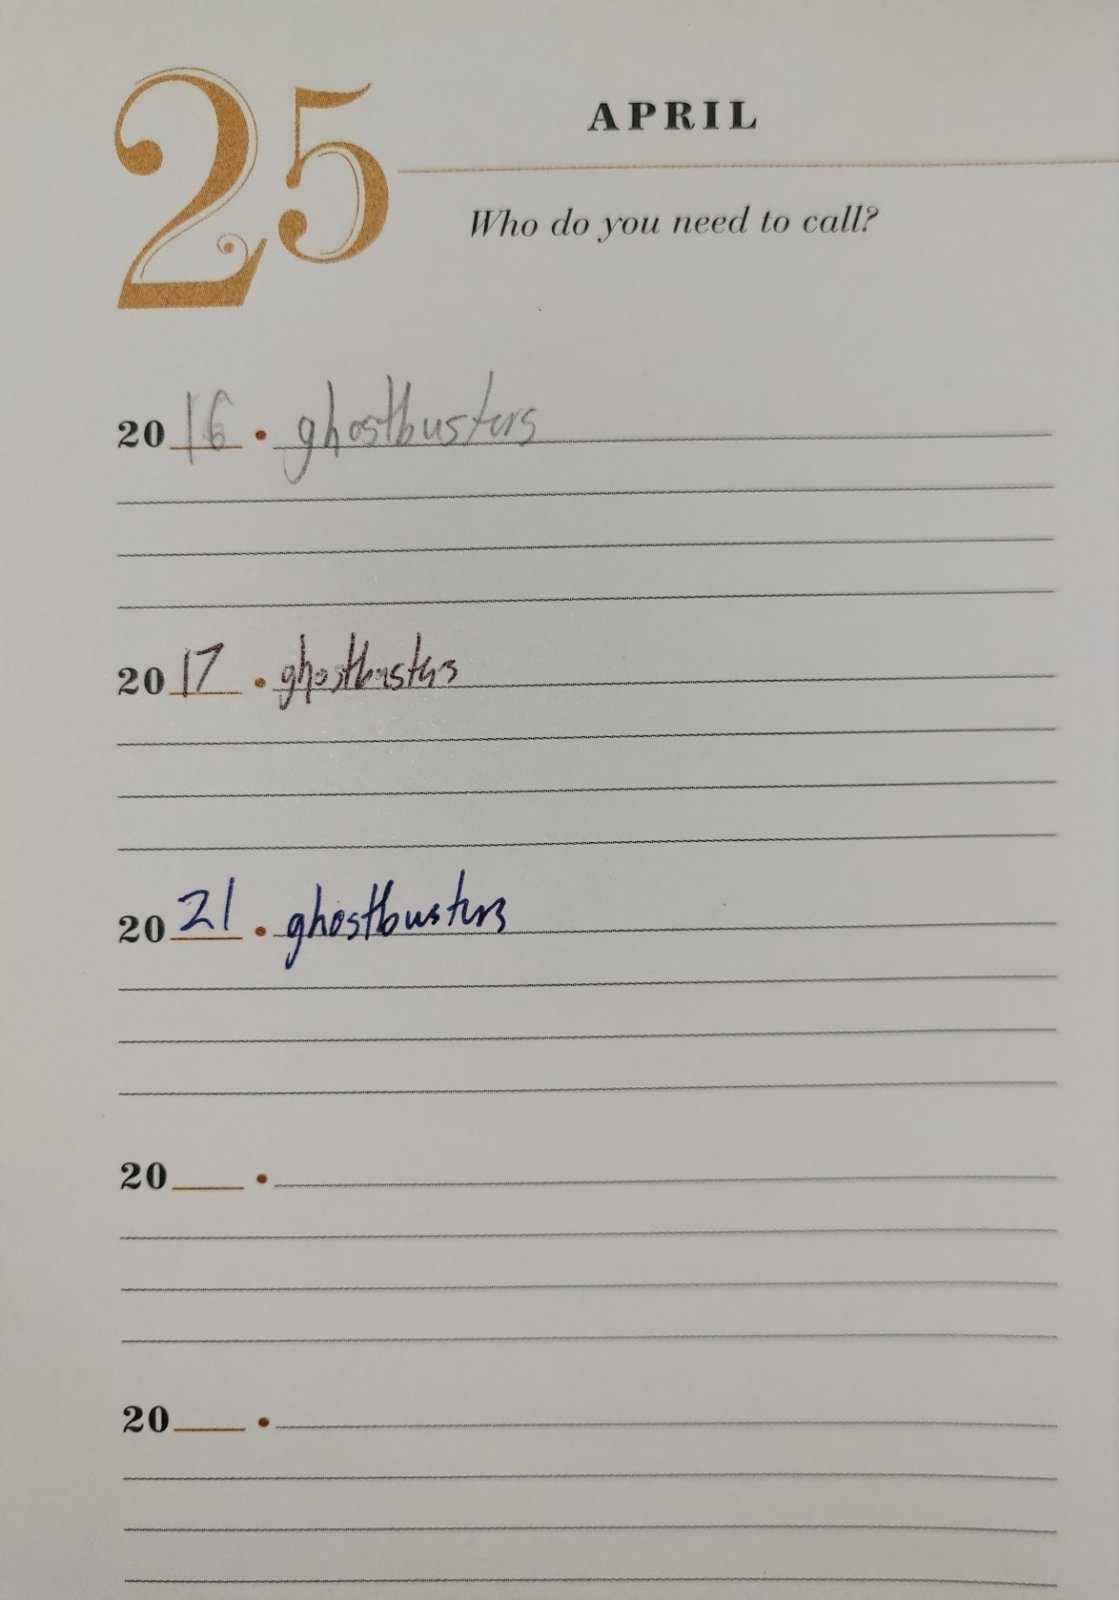 25
APRIL
Who do you need to call?
2016 • ghostbusters
2017 • ghostbusters
2021 • ghostbusters
20___ •
20___ •